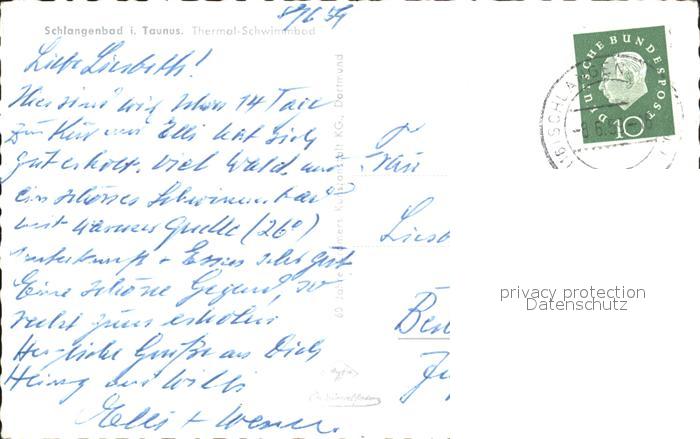 8/6 59
Schlangenbad i. Taunus. Thermal-Schwimmbad
Liebe Liesbeth!
Hier sind wir schon 14 Tage
zur Kur und Elli hat sich
gut erholt. Viel Wald, und
ein schönes Schwimmbad
mit warmer Quelle (26°)
Unterkunft + Essen sehr gut
Eine schöne Gegend, so
recht zum erholen
Herzliche Grüße an Dich
Heinz und Willi
Elli +
Frau
Liesb
Ber
60 Jahre Cramers Kunstanstalt KG., Dortmund
DEUTSCHE BUNDESPOST
10
(16) SCHLANGENB
privacy protection
Datenschutz